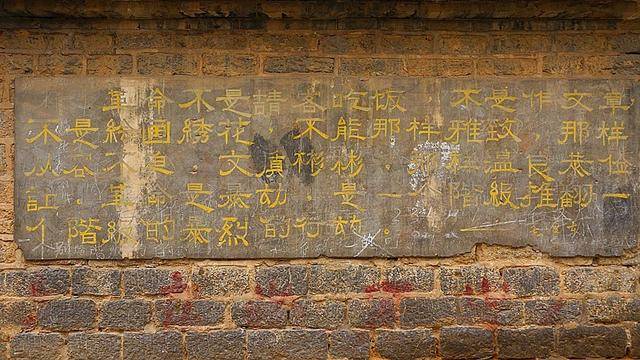 革命不是請客吃饭，不是作文章，
不是绘画绣花，不能那样雅致，那样
从容不迫，文质彬彬，那样温良恭俭
讓。革命是暴动，是一个阶级推翻一
个阶级的暴烈的行动。